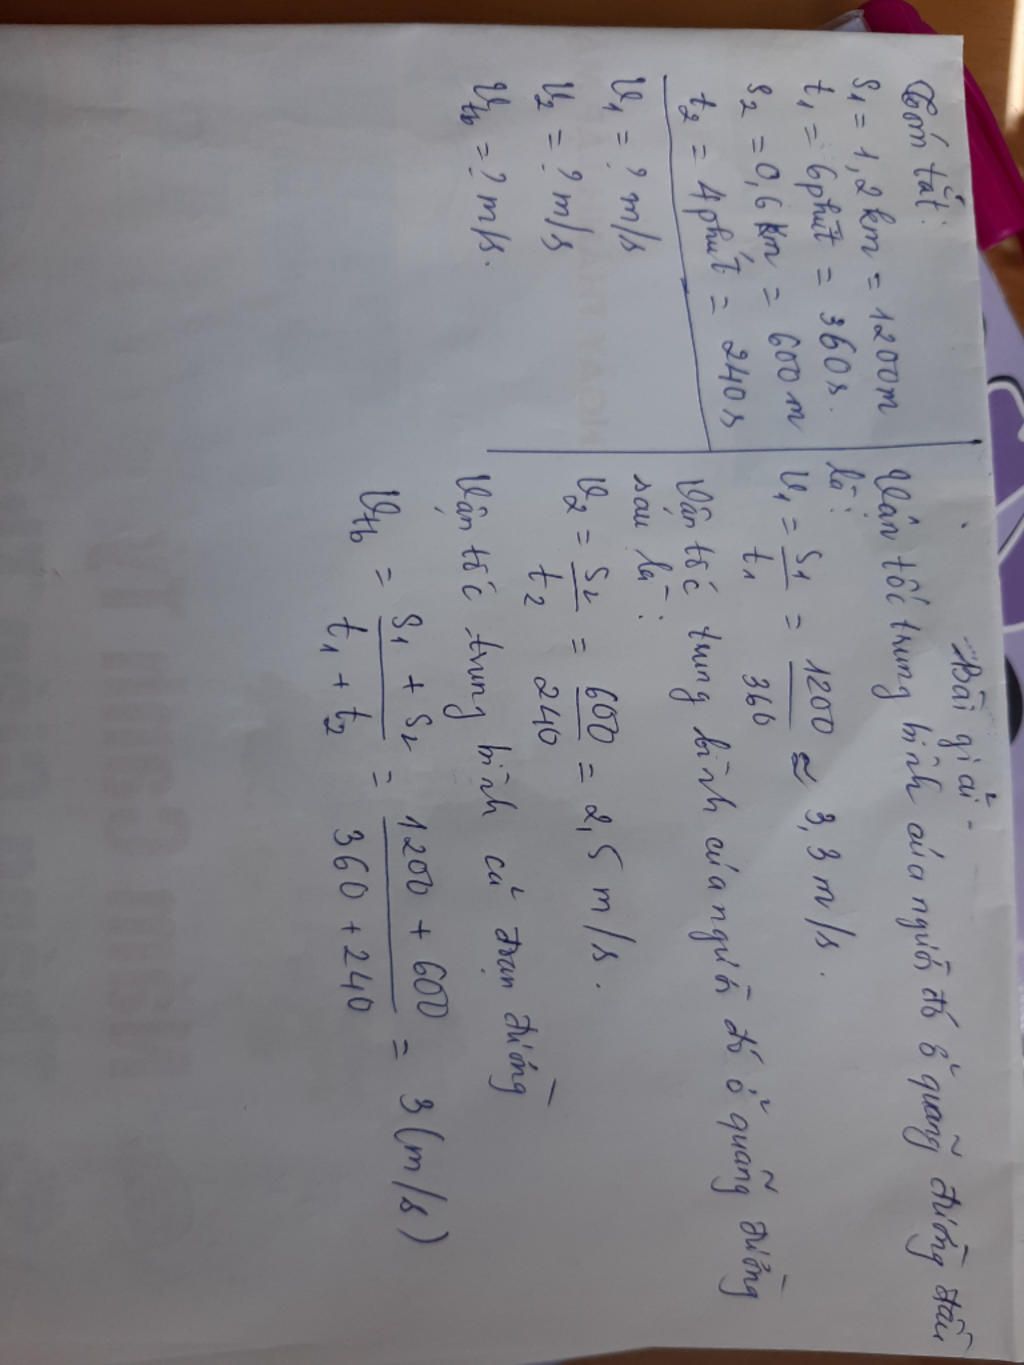 Tóm tắt:
s1 = 1,2 km = 1200m
t1 = 6 phút = 360s.
s2 = 0,6 km = 600 m
t2 = 4 phút = 240s
v1 = ? m/s
v2 = ? m/s
vtb = ? m/s.
Bài giải
Vận tốc trung bình của người đó ở quãng đường đầu
là:
v1 = s1/t1 = 1200/360 ≈ 3,3 m/s.
Vận tốc trung bình của người đó ở quãng đường
sau là:
v2 = s2/t2 = 600/240 = 2,5 m/s.
Vận tốc trung bình cả đoạn đường
vtb = (s1 + s2)/(t1 + t2) = (1200 + 600)/(360 + 240) = 3 (m/s)